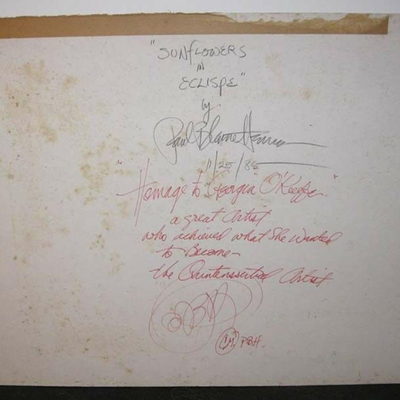 "SUNFLOWERS
IN
ECLISPE"
by
Paul Blaine
11/25/86
"Homage to Georgia "O'Keefe
a great Artist
who achieved what She wanted
to Become—
the Quintessential Artist
PBH.